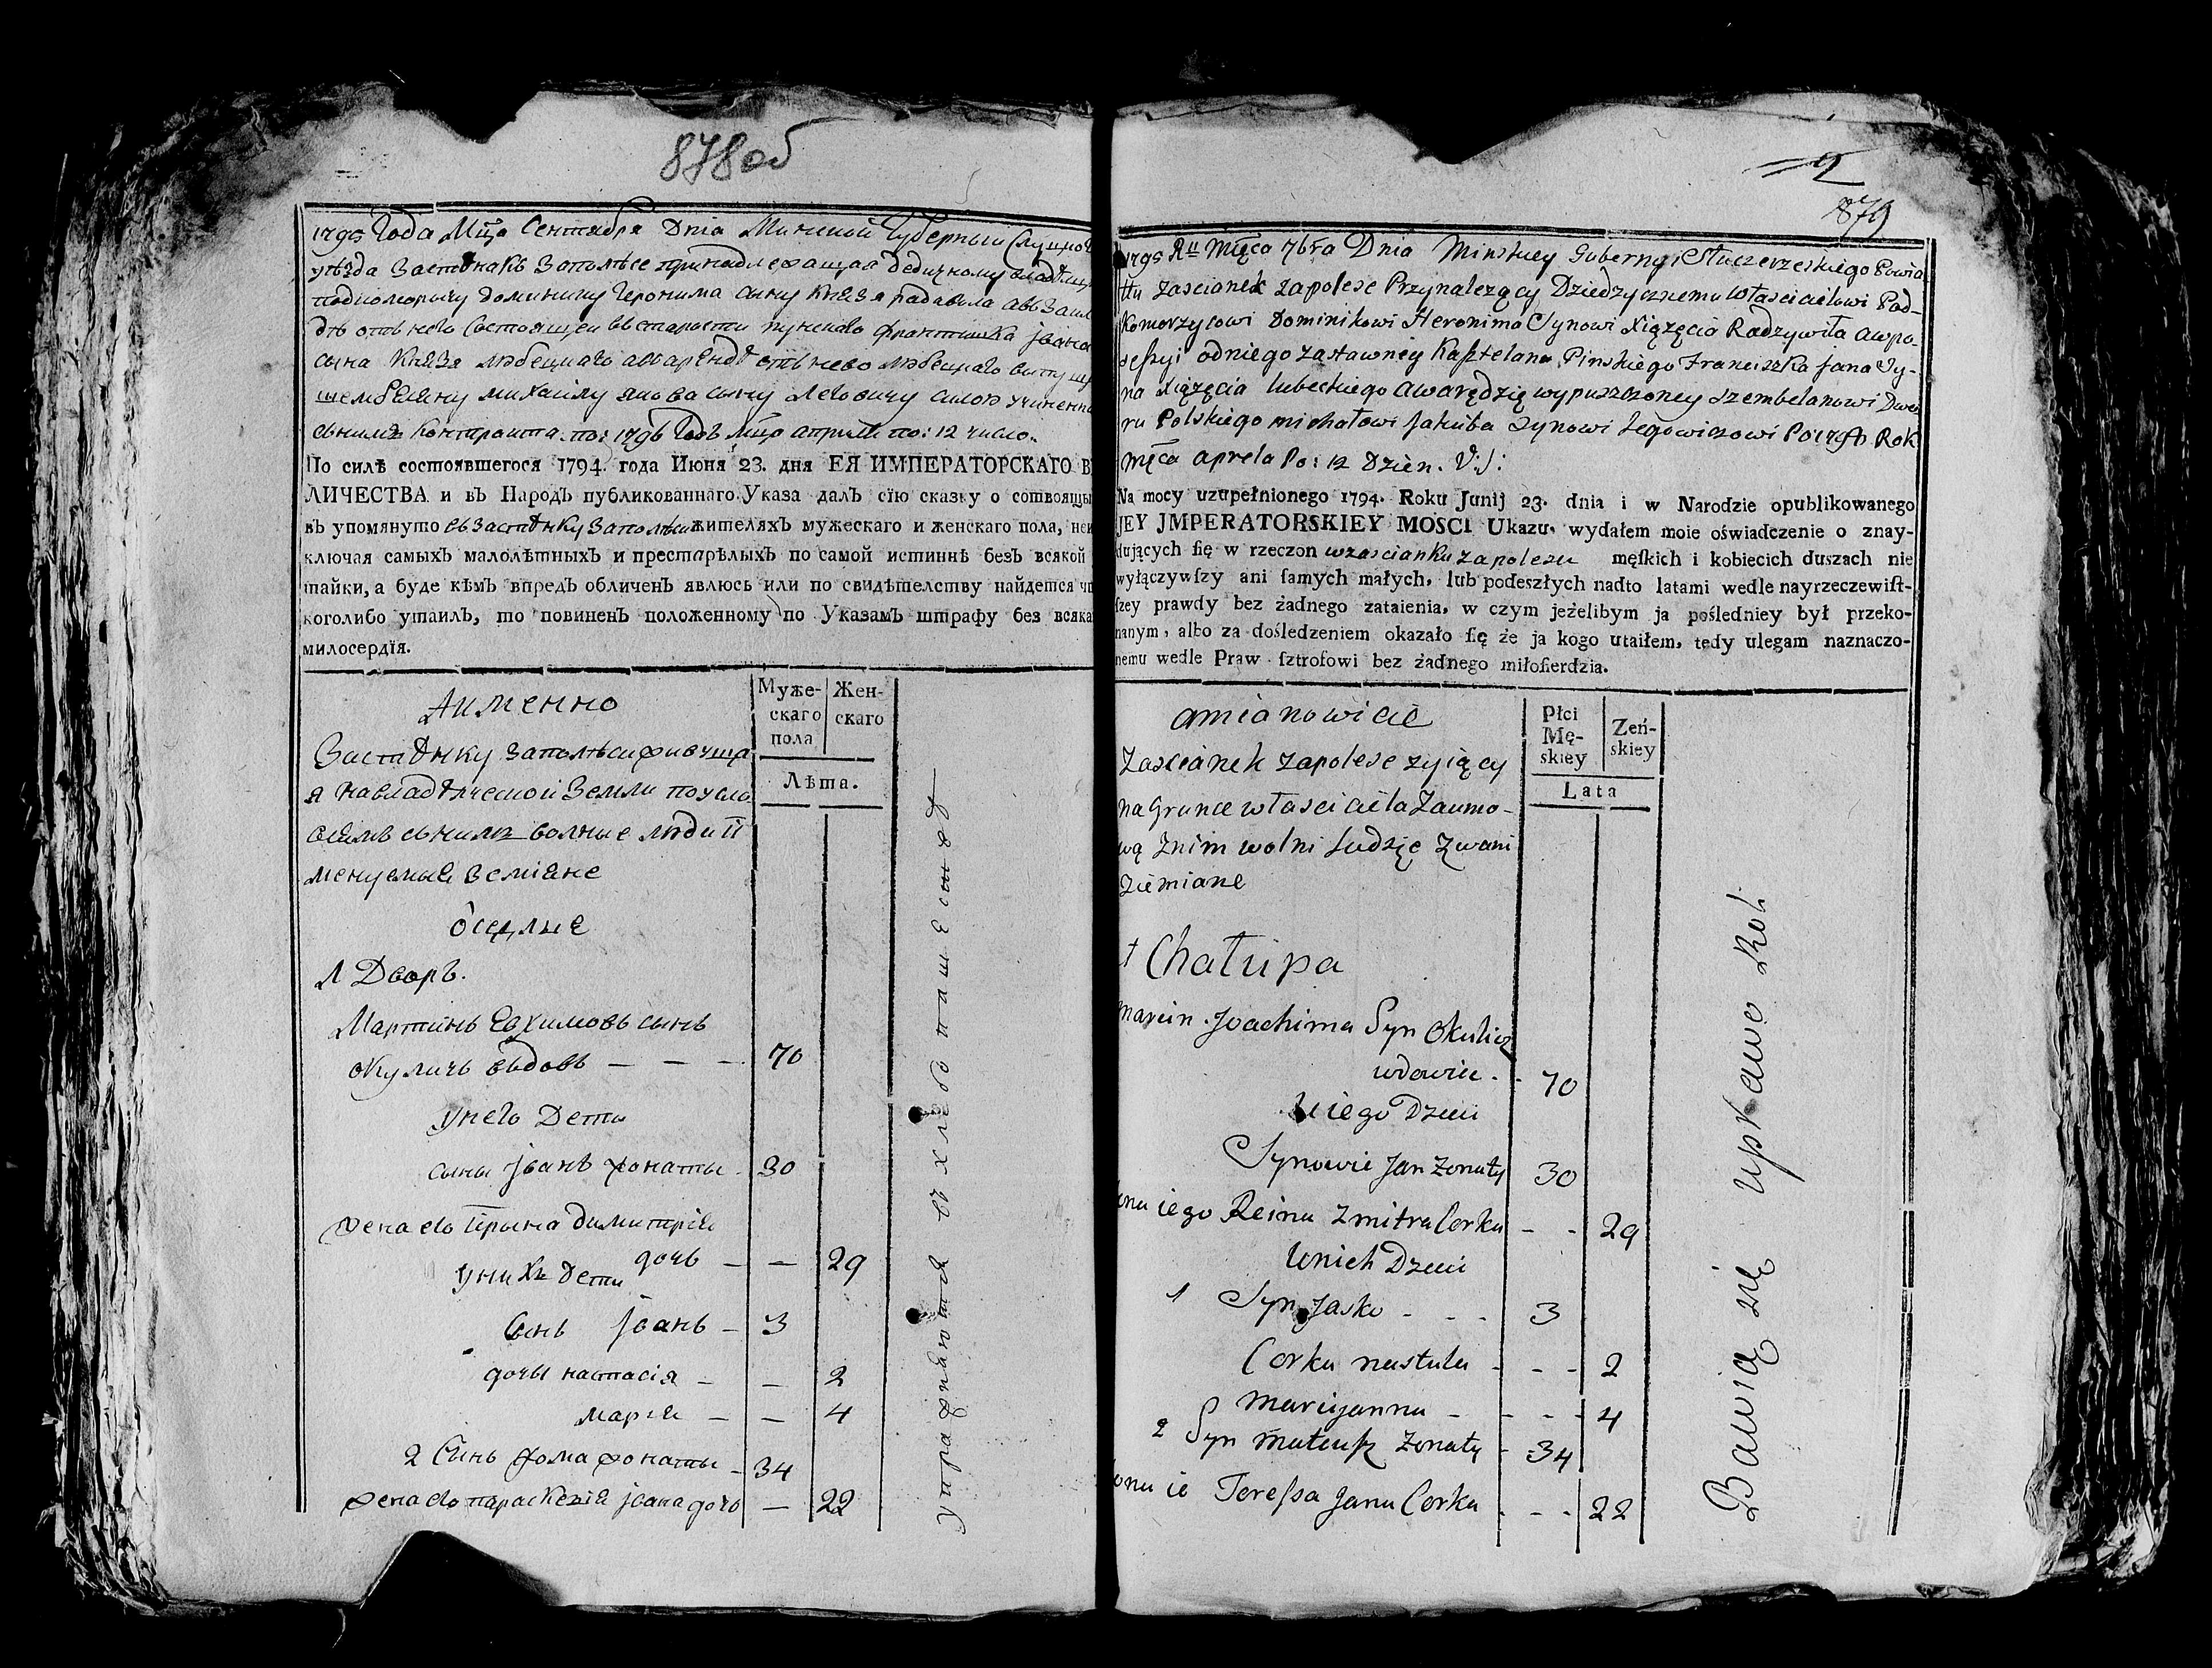 878 об
1795 Года Мца Сентября Dnia Минской Губерныи Слуцкого
уѣзда Застѣнакъ Заполѣсе принадлежащая дедичному владѣлцу
подкоморычу Доминику Геронима сыну Князя радзивила
дѣ отъ него Состоящей въ старости пунского францишка Jвана
сына Князя любецкаго аварендѣ отъ нево любецкаго выпущ
шембеляну михаилу якова сыну Леговичу силою учиненна
съ нимъ Контракта. по: 1796 Годъ Мцо априля по: 12 число.
По силѣ состоявшегося 1794. года Июня 23. дня ЕЯ ИМПЕРАТОРСКАГО В
ЛИЧЕСТВА и въ Народъ публикованнаго Указа далъ сїю сказку о сотвоящы
въ упомянуто съ Застѣнку Заполѣси жителяхъ мужескаго и женскаго пола, неи
ключая самыхъ малолѣтныхъ и престарѣлыхъ по самой истиннѣ безъ всякой
тайки, а буде кѣмъ впредъ обличенъ явлюсь или по свидѣтелству найдется чт
коголибо утаилъ, то повиненъ положенному по Указамъ штрафу без всяка
милосердїя.
Аименно
Муже-
скаго
пола
Жен-
скаго
Лѣта.
Застѣнку Заполѣси живуща
я навладѣлческой Земли поусло
виямъ снимъ волные люди И
менуемыя Земіяне
Оседлые
1 Дворъ.
Мартинъ Евхимовъ сынъ
Окуличъ въдовъ — — — 70
Унего Дети
сыны Jванъ жонаты 30
жена его Ирына димитрія
дочь — — 29
Унихъ дети
Сынъ Jванъ — 3
дочы настасія — — 2
марія — — 4
2 Сынъ фома жонаты — 34
жена его параскевія Jвана дочь — 22
упражняются въ хлебопашестве
2
879
1795 Ru Mięca 7bra Dnia Minskiey Gubernyi Słuczerzeskiego Powia
ttu Zascianek Zapolese Przynalezący Dziedzycznemu Własciciełowi Pod-
komorzycowi Dominikowi Heronima Synowi Xiązęcia Radzywiła awpo-
sessyi odniego zastawney Kasztelana Pinskiego Franciszka Jana Sy-
na Xiązęcia lubeckiego awarędzię wypuszczoney Szembelanowi Dwo
ru Polskiego michałowi Jakuba Synowi Legowiczowi Po: 1796 Rok
Męca aprela Po: 12 Dzien. V:S:
Na mocy uzupełnionego 1794. Roku Junij 23. dnia i w Narodzie opublikowanego
JEY JMPERATORSKIEY MOSCI Ukazu, wydałem moie oświadczenie o znay-
dujących ſię w rzeczon wzascianku zapolesu męſkich i kobiecich duszach nie
wyłączywſzy ani ſamych małych, lub podeszłych nadto latami wedle nayrzeczewiſt-
ſzey prawdy bez żadnego zataienia, w czym jeżelibym ja poſledniey był przeko-
nanym, albo za dośledzeniem okazało ſię że ja kogo utaiłem, tedy ulegam naznaczo-
nemu wedle Praw ſztrofowi bez żadnego miłoſierdzia.
amianowicie
Płci
Mę-
skiey
Zeń-
skiey
Lata
Zascianek Zapolese zyiący
na Grunce własciciela Zaumo-
wą Znim wolni ludzię Zwani
Ziemiane
1 Chałupa
Marcin Joachima Syn Okulicz
wdowiec - 70
Uiego Dzieci
Synowie Jan Zonaty 30
ona iego Reina Zmitra Corka - - 29
Unich Dzieci
1 Syn Jasko - - - 3
Corka nastula - - - 2
Maryjanna - - - - 4
2 Syn Mateusz Zonaty - 34
ona ie Teressa Jana Corka - - - 22
Bawią się uprawe Roli